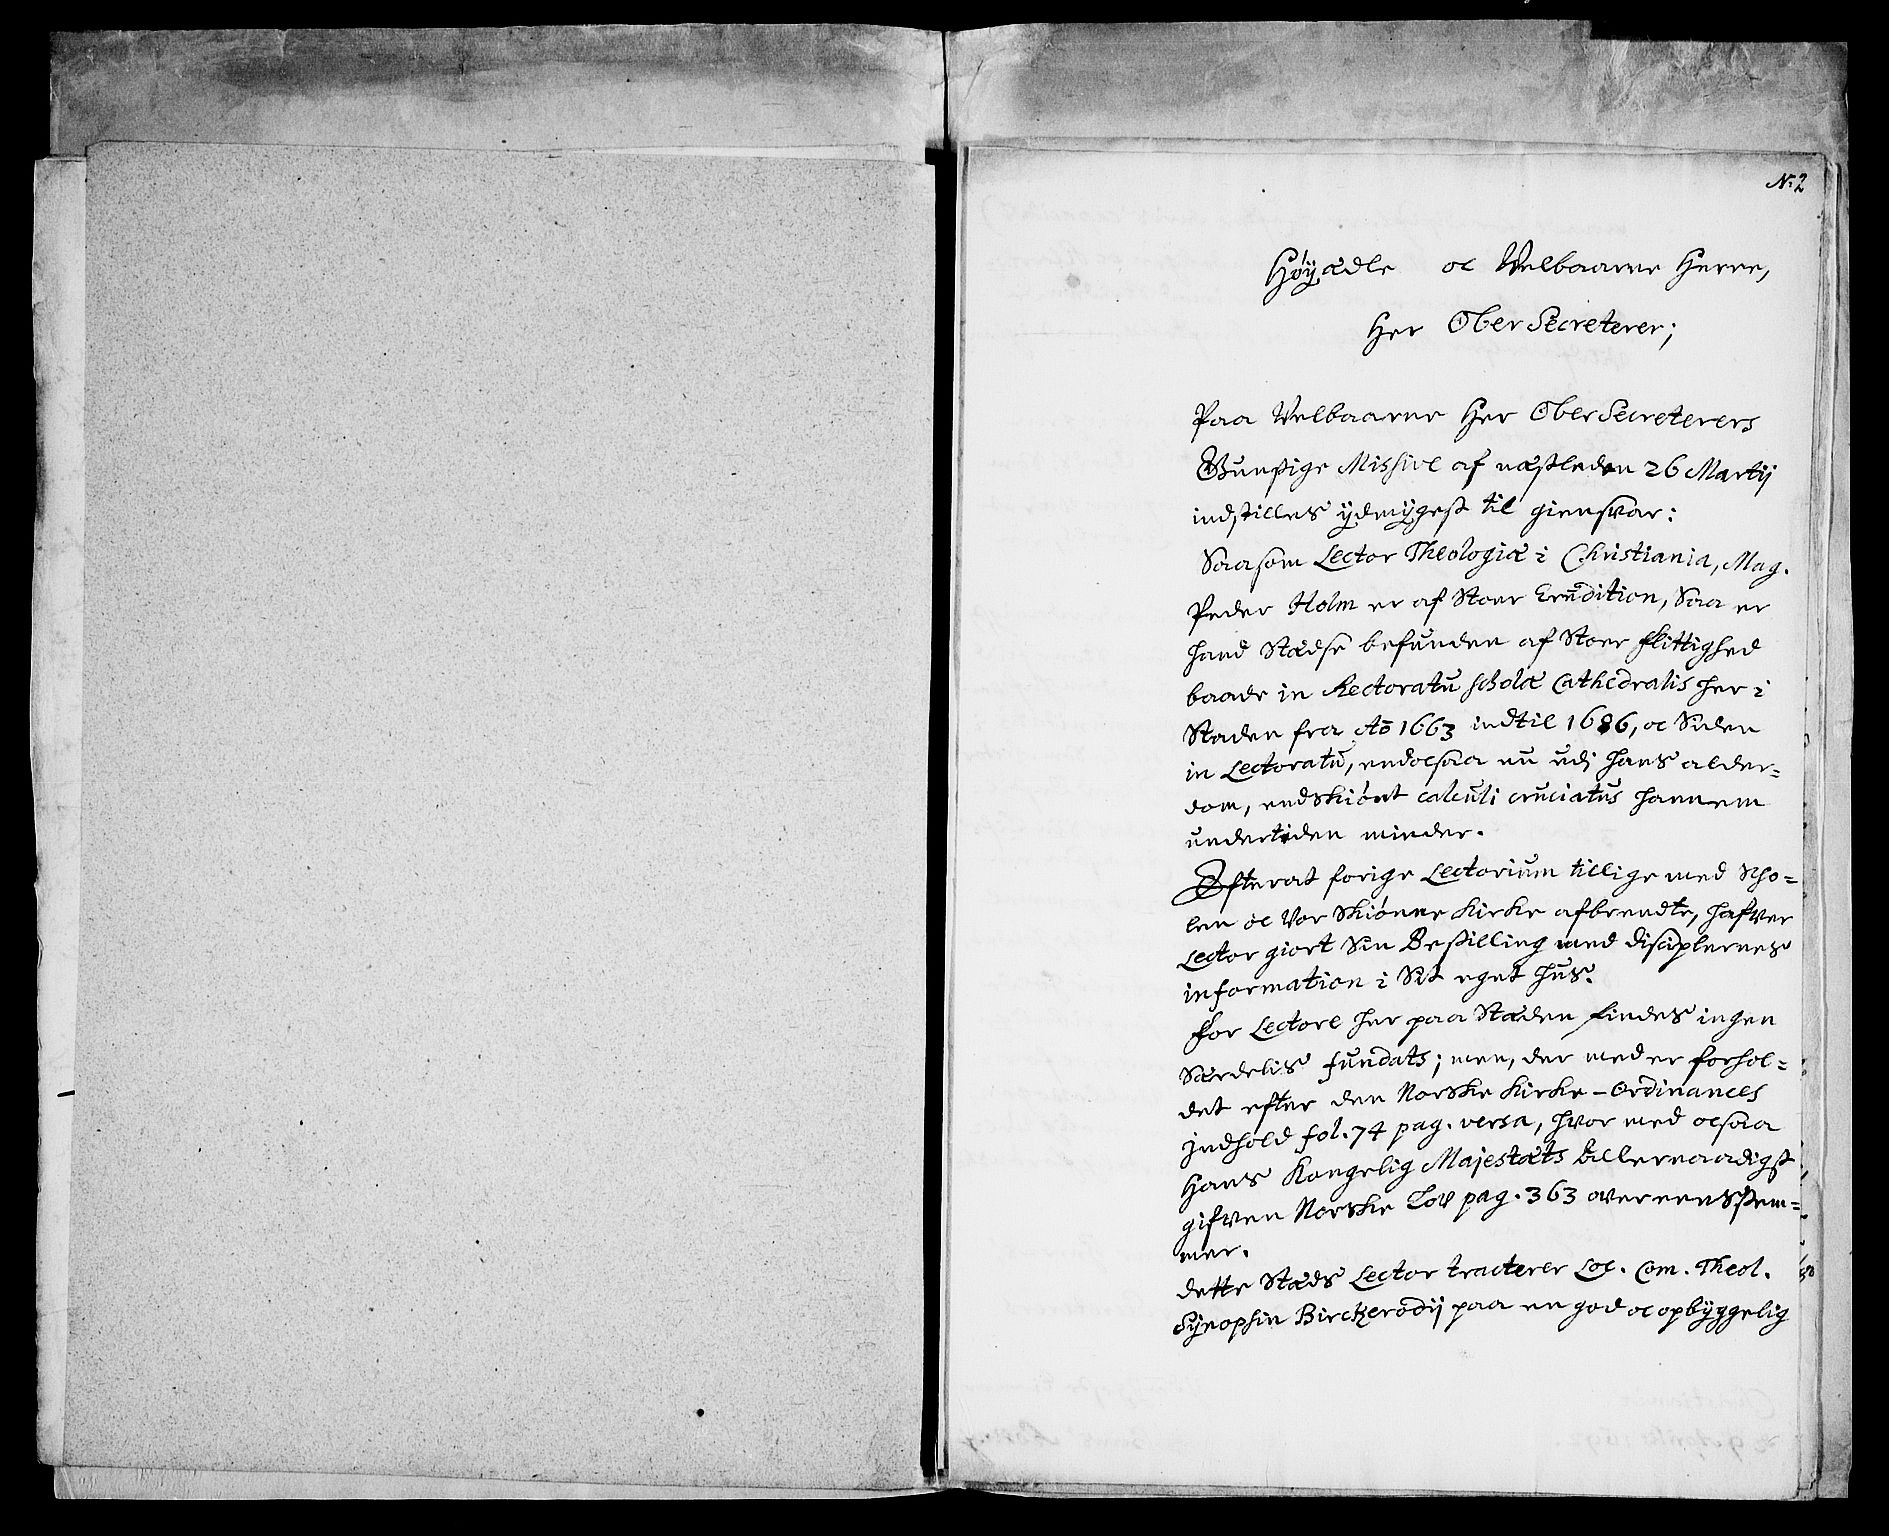 N: 2
Høÿædle oc Velbaarne Herre,
Her Ober Secreterer;
Paa Velbaarne Her Ober Secreterers
Gunstige Missive af næstleden 26 Martij
indstilles ÿdmÿgest til giensvar:
Saasom Lector Theologiæ i Christiania, Mag.
Peder Holm er af Stoer Erudition, Saa er
hand Stædse befunden af Stoer flittighed
baade in Rectoratu scholæ Cathedralis her i
Staden fra Ao 1663 indtil 1686, oc Siden
in Lectoratu, endocsaa nu udj hans alder=
dom, endskiønt calculi cruciatus hannem
undertiden minder.
Efterat forige Lectorium tillige med Scho=
len oc Vor Skiønne Kirke afbrendte, hafver
Lector giort Sin Bestilling med disciplernes
information i Sit eget hus.
For Lectore her paa Stæden findes ingen
Særdelis fundats; men, der med er forhol=
det efter den Norske Kirke-Ordinances
Indhold fol. 74 pag. versa, hvor med ocsaa
Hans Kongelig Majestæts allernaadigst
gifven Norske Lov pag. 363 overeensstem=
mer.
dette Stæds Lector tracterer Loc. Com. Theol.
Sÿnopsin Birckerodij paa en god oc opbÿggelig